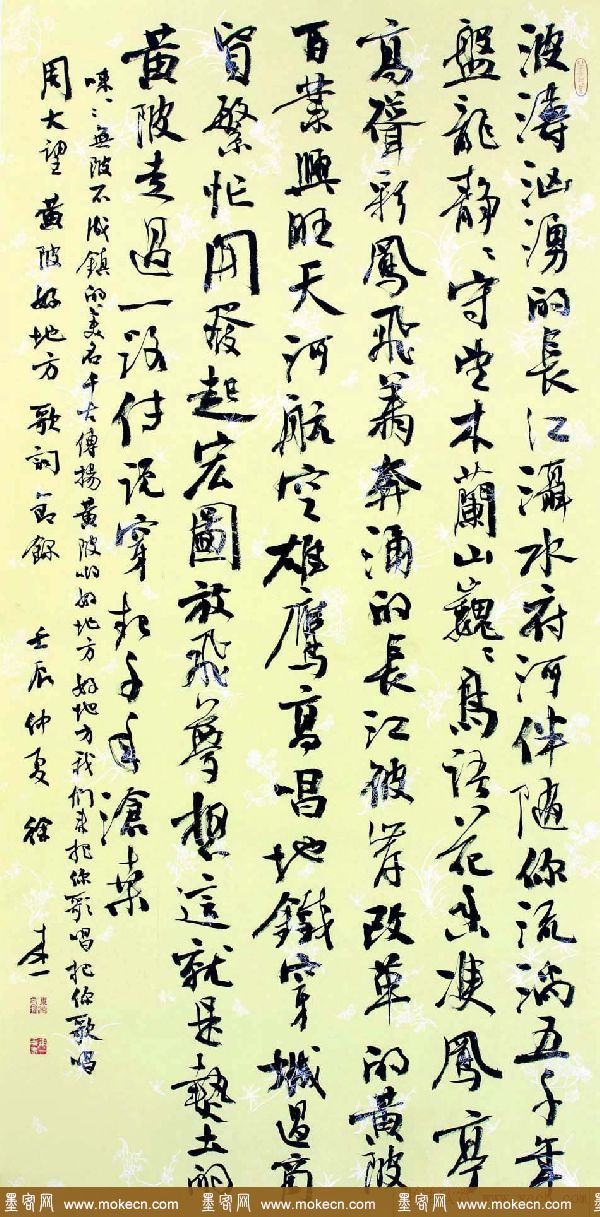 波濤洶湧的長江灄水府河伴隨你流淌五千年
盤龍靜〻守望木蘭山巍〻鳥語花香 鳳
高聳彩鳳飛翥奔涌的長江彼岸改革的黃陂
百業興旺天河航空雄鷹高唱地鐵穿城過商
貿繁忙開發起宏圖放飛夢想這就是熱土的
黃陂走過一路傳說穿越千年滄桑
噗〻無陂不成鎮的美名千古傳揚黃陂好地方好地方我們來把你歌唱把你歌唱
周大望黃陂好地方歌詞節錄 壬辰仲夏 徐
墨客网 www.mokecn.com 墨客网 www.mokecn.com 墨客网 www.mokecn.com